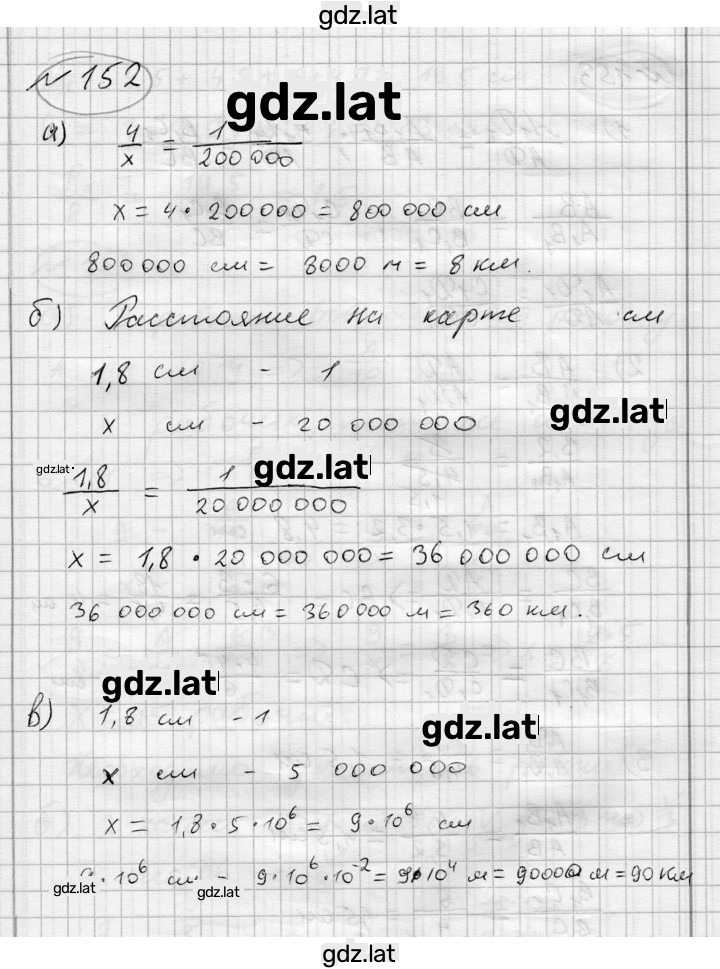 gdz.lat
№ 152
gdz.lat
а) 4/x = 1/200 000
x = 4 · 200 000 = 800 000 см
800 000 см = 8000 м = 8 км.
б) Расстояние на карте см
1,8 см - 1
gdz.lat
x см - 20 000 000
gdz.lat
gdz.lat
1,8/x = 1/20 000 000
x = 1,8 · 20 000 000 = 36 000 000 см
36 000 000 см = 360 000 м = 360 км.
gdz.lat
в) 1,8 см - 1
gdz.lat
x см - 5 000 000
x = 1,8 · 5 · 10⁶ = 9 · 10⁶ см
· 10⁶ см - 9 · 10⁶ · 10⁻² = 9 · 10⁴ м = 90000 м = 90 км
gdz.lat
gdz.lat
gdz.lat